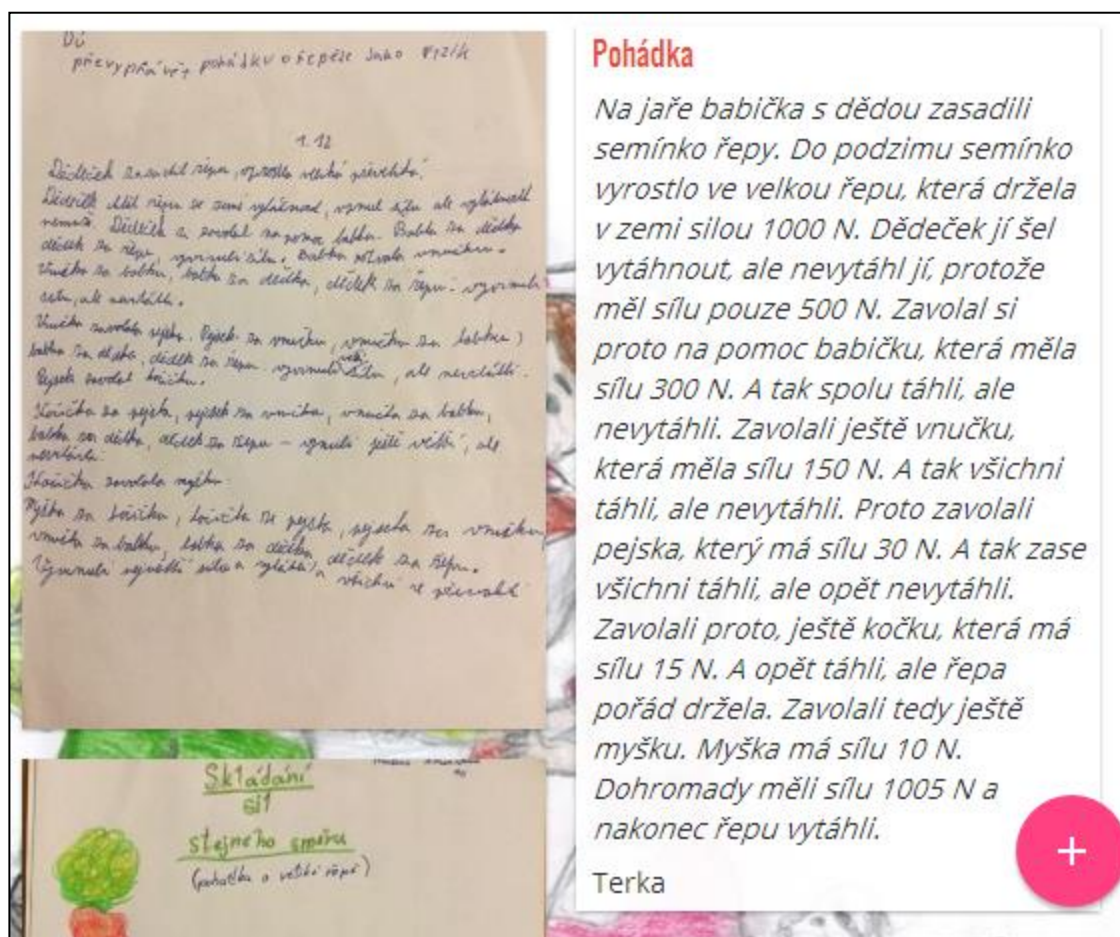 DÚ
převyprávět pohádku o řepěle jako fyzik
1. 12
Dědeček zasadil řepu, vyrostla veliká převeliká.
Dědeček chtěl řepu ze země vytáhnout, vyvinul sílu ale vytáhnout
nemůže. Dědeček si zavolal na pomoc babku. Babka za dědka
dědek za řepu, vyvinuli sílu. Babka volala vnučku.
Vnučka za babku, babka za dědka, dědek za řepu - vyvinuli
sílu, ale
Vnučka zavolala pejska. Pejsek za vnučku, vnučka za babku,
babka za dědka, dědek za řepu. vyvinuli větší sílu, ale
Pejsek zavolal kočičku.
Kočička za pejska, pejsek za vnučku, vnučka za babku,
babka za dědka, dědek za řepu - ještě větší, ale
Kočička zavolala myšku.
Myška za kočičku, kočička za pejska, pejsek za vnučku,
vnučka za babku, babka za dědka, dědek za řepu.
Vyvinuli největší sílu a a všichni se
Skládání
sil
stejného směru
(pohádka o veliké řepě)
Pohádka
Na jaře babička s dědou zasadili
semínko řepy. Do podzimu semínko
vyrostlo ve velkou řepu, která držela
v zemi silou 1000 N. Dědeček jí šel
vytáhnout, ale nevytáhl jí, protože
měl sílu pouze 500 N. Zavolal si
proto na pomoc babičku, která měla
sílu 300 N. A tak spolu táhli, ale
nevytáhli. Zavolali ještě vnučku,
která měla sílu 150 N. A tak všichni
táhli, ale nevytáhli. Proto zavolali
pejska, který má sílu 30 N. A tak zase
všichni táhli, ale opět nevytáhli.
Zavolali proto, ještě kočku, která má
sílu 15 N. A opět táhli, ale řepa
pořád držela. Zavolali tedy ještě
myšku. Myška má sílu 10 N.
Dohromady měli sílu 1005 N a
nakonec řepu vytáhli.
Terka